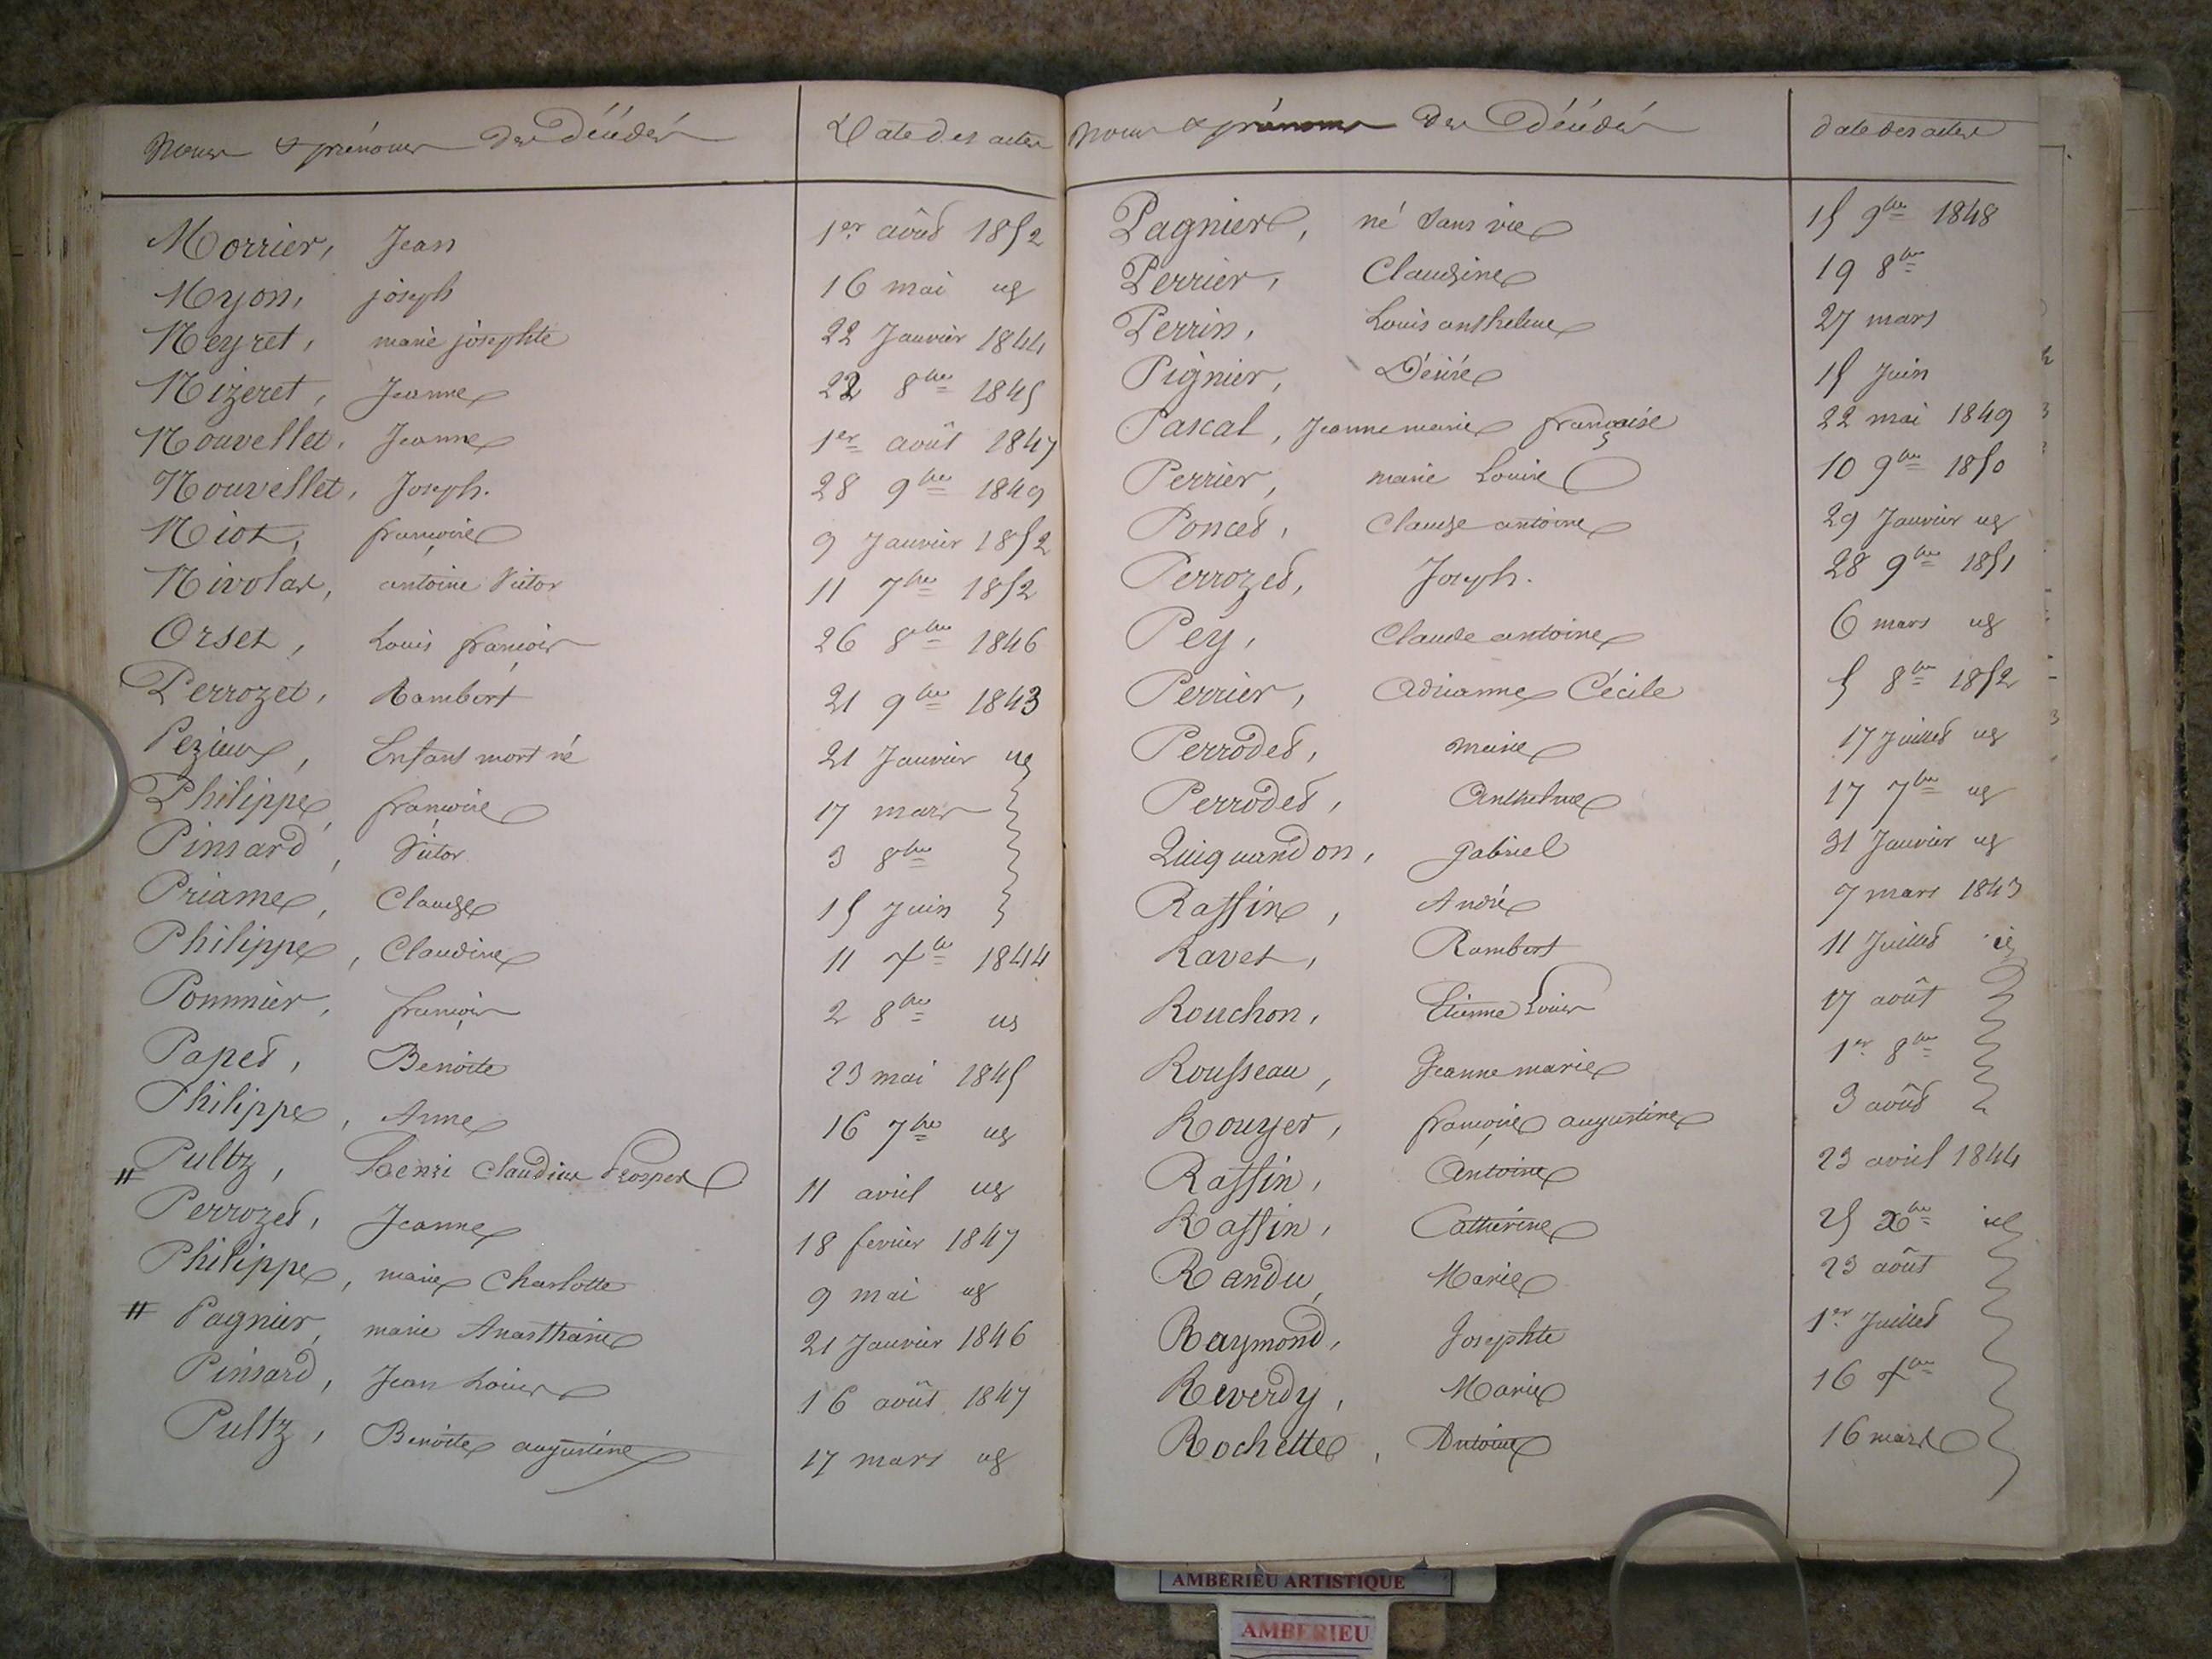 Noms & prénoms des Décédés
Date des actes
Morrier, Jean 1er août 1852
Myon, joseph 16 mai id
Neyret, marie josephte 22 Janvier 1844
Nizeret, Jeanne 22 8bre 1845
Nouvellet, Jeanne 1er août 1847
Nouvellet, Joseph. 28 9bre 1849
Niot, françoise 9 Janvier 1852
Nivolas, antoine Victor 11 7bre 1852
Orset, Louis françois 26 8bre 1846
Perrozet, Rambert 21 9bre 1843
Pezieux, Enfant mort né 21 Janvier id
Philippe, françoise 17 mars
Pinsard, Victor 3 8bre
Priame, Claude 15 Juin
Philippe, Claudine 11 7bre 1844
Pommier, françois 2 8bre id
Papet, Benoite 23 mai 1845
Philippe, Anne 16 7bre id
Pultz, henri Claudius Prosper 11 avril id
Perrozet, Jeanne 18 fevrier 1847
Philippe, marie Charlotte 9 mai id
Pagnier, marie 21 Janvier 1846
Pinsard, Jean Louis 16 août 1847
Pultz, Benoite augustine 17 mars id
Noms & prénoms des Décédés
date des actes
Pagnier, né sans vie 15 9bre 1848
Perrier, Claudine 19 8bre
Perrin, Louis anthelme 27 mars
Pignier, Désiré 15 Juin
Pascal, Jeanne marie françoise 22 mai 1849
Perrier, marie Louise 10 9bre 1850
Poncet, Claude antoine 29 Janvier id
Perrozet, Joseph. 28 9bre 1851
Pey, Claude antoine 6 mars id
Perrier, Adrianne Cécile 5 8bre 1852
Perrodet, marie 17 juillet id
Perrodet, Anthelme 17 7bre id
Quiquandon, gabriel 31 Janvier id
Raffin, André 7 mars 1843
Ravet, Rambert 11 Juillet id
Rouchon, Etienne Louis 17 août
Rousseau, Jeanne marie 1er 8bre
Rouyer, françoise augustine 3 août
Raffin, Antoine 23 avril 1844
Raffin, Catherine 25 Xbre id
Randu, Marie 23 août
Raymond, Josephte 1er Juillet
Reverdy, Marie 16 7bre
Rochette, Antoine 16 mars
AMBERIEU ARTISTIQUE
AMBERIEU